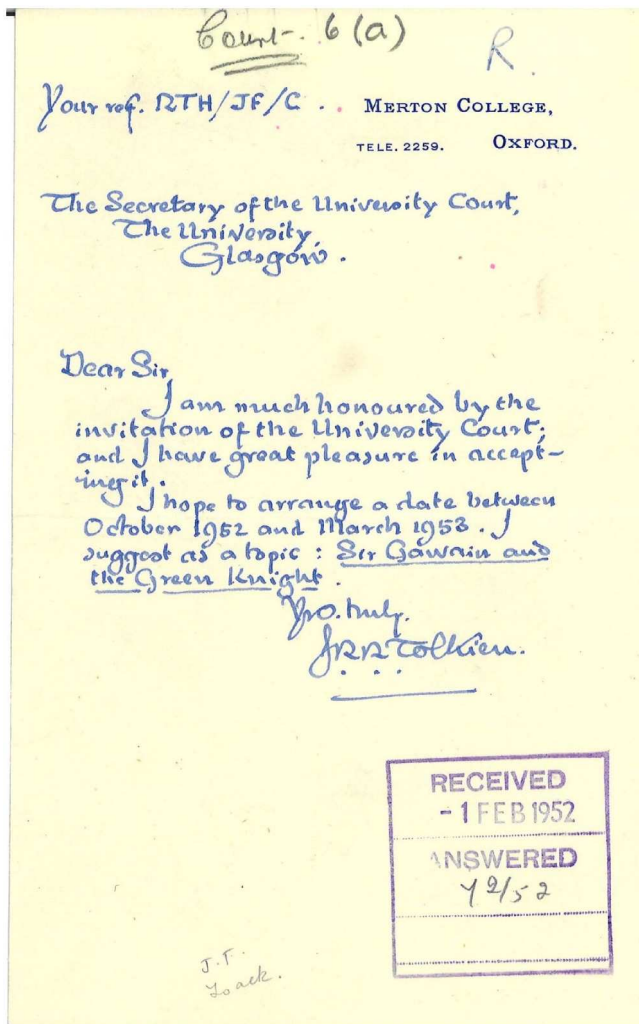 Court. 6 (a)
R.
Your ref. RTH/JF/C . MERTON COLLEGE,
TELE. 2259. OXFORD.
The Secretary of the University Court,
The University,
Glasgow.
Dear Sir,
I am much honoured by the
invitation of the University Court;
and I have great pleasure in accept-
ing it.
I hope to arrange a date between
October 1952 and March 1953. I
suggest as a topic: Sir Gawain and
the Green Knight.
Yrs. truly.
JRRTolkien.
RECEIVED
- 1 FEB 1952
ANSWERED
7 2/52
J.F.